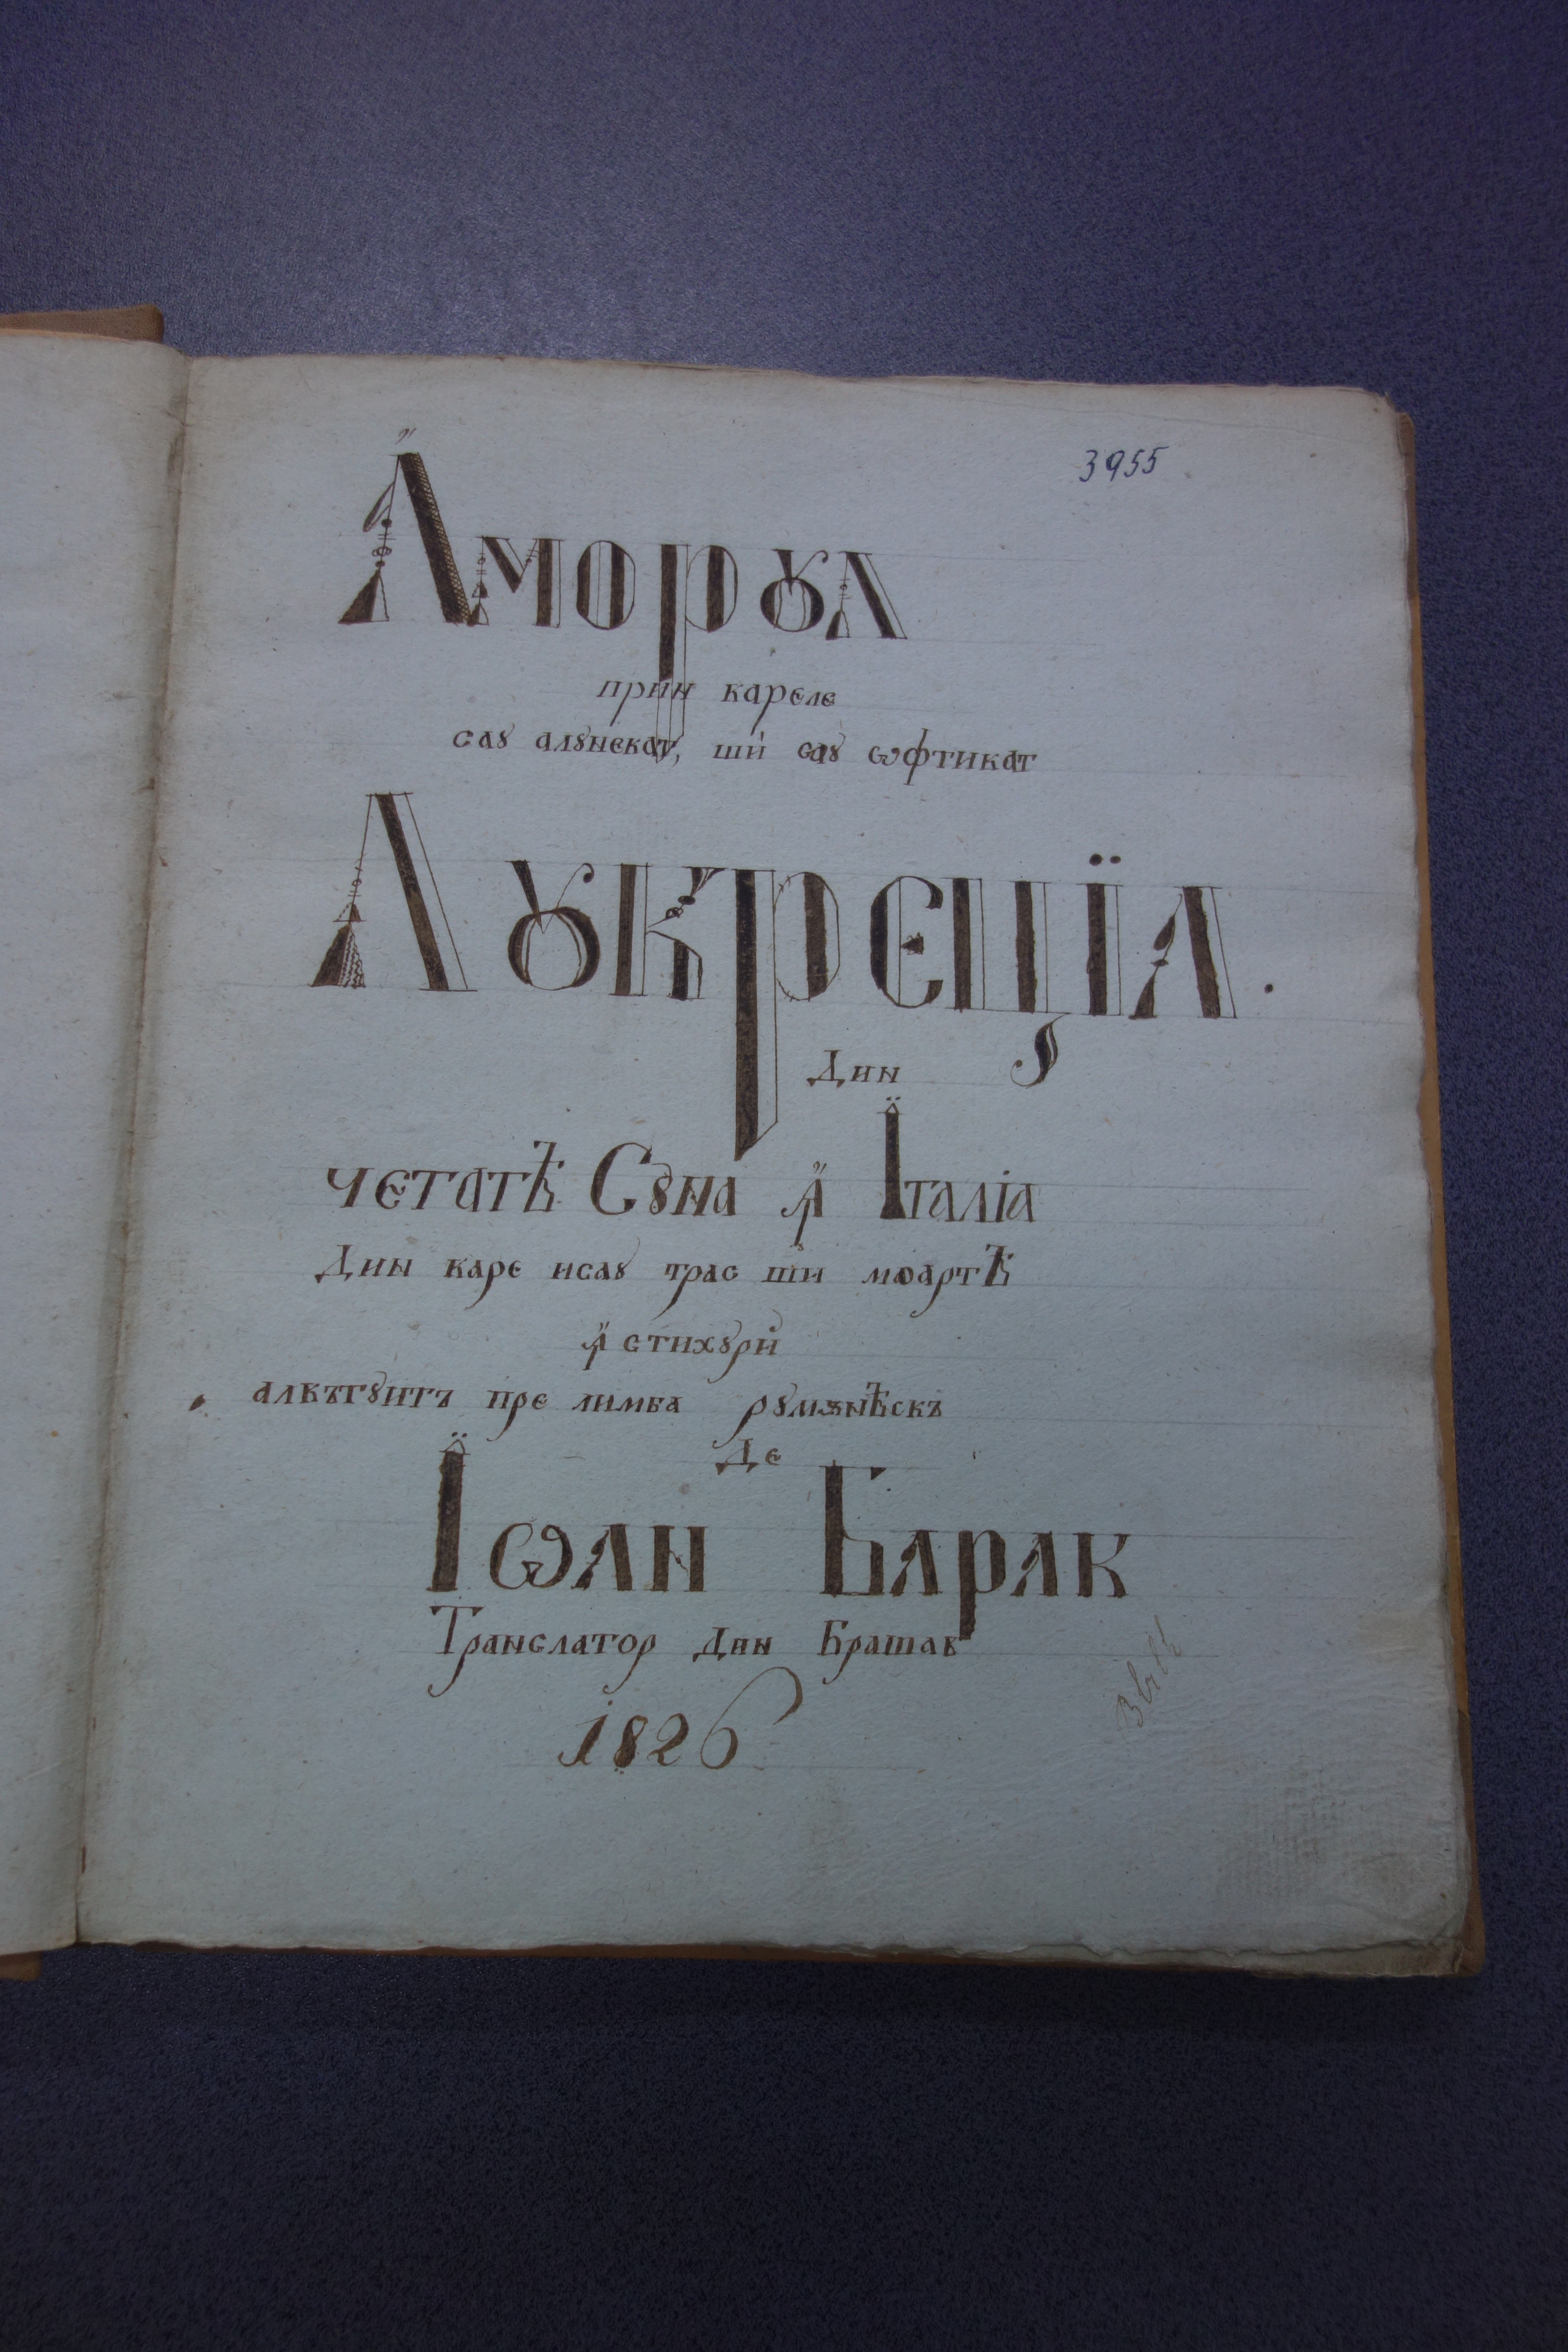 3955
Аморꙋл
прин кареле
саꙋ алꙋнекат, ши саꙋ ѡфтикат
Лꙋкреціа.
Дин
четатѣ Сꙋна ꙟ Італіа
Дин каре исаꙋ трас ши моартѣ
ꙟ стихꙋри
алкътꙋитъ пре лимба рꙋмѫнѣскъ
Де
Їѡан Барак
Транслатор дин Брашав
1826